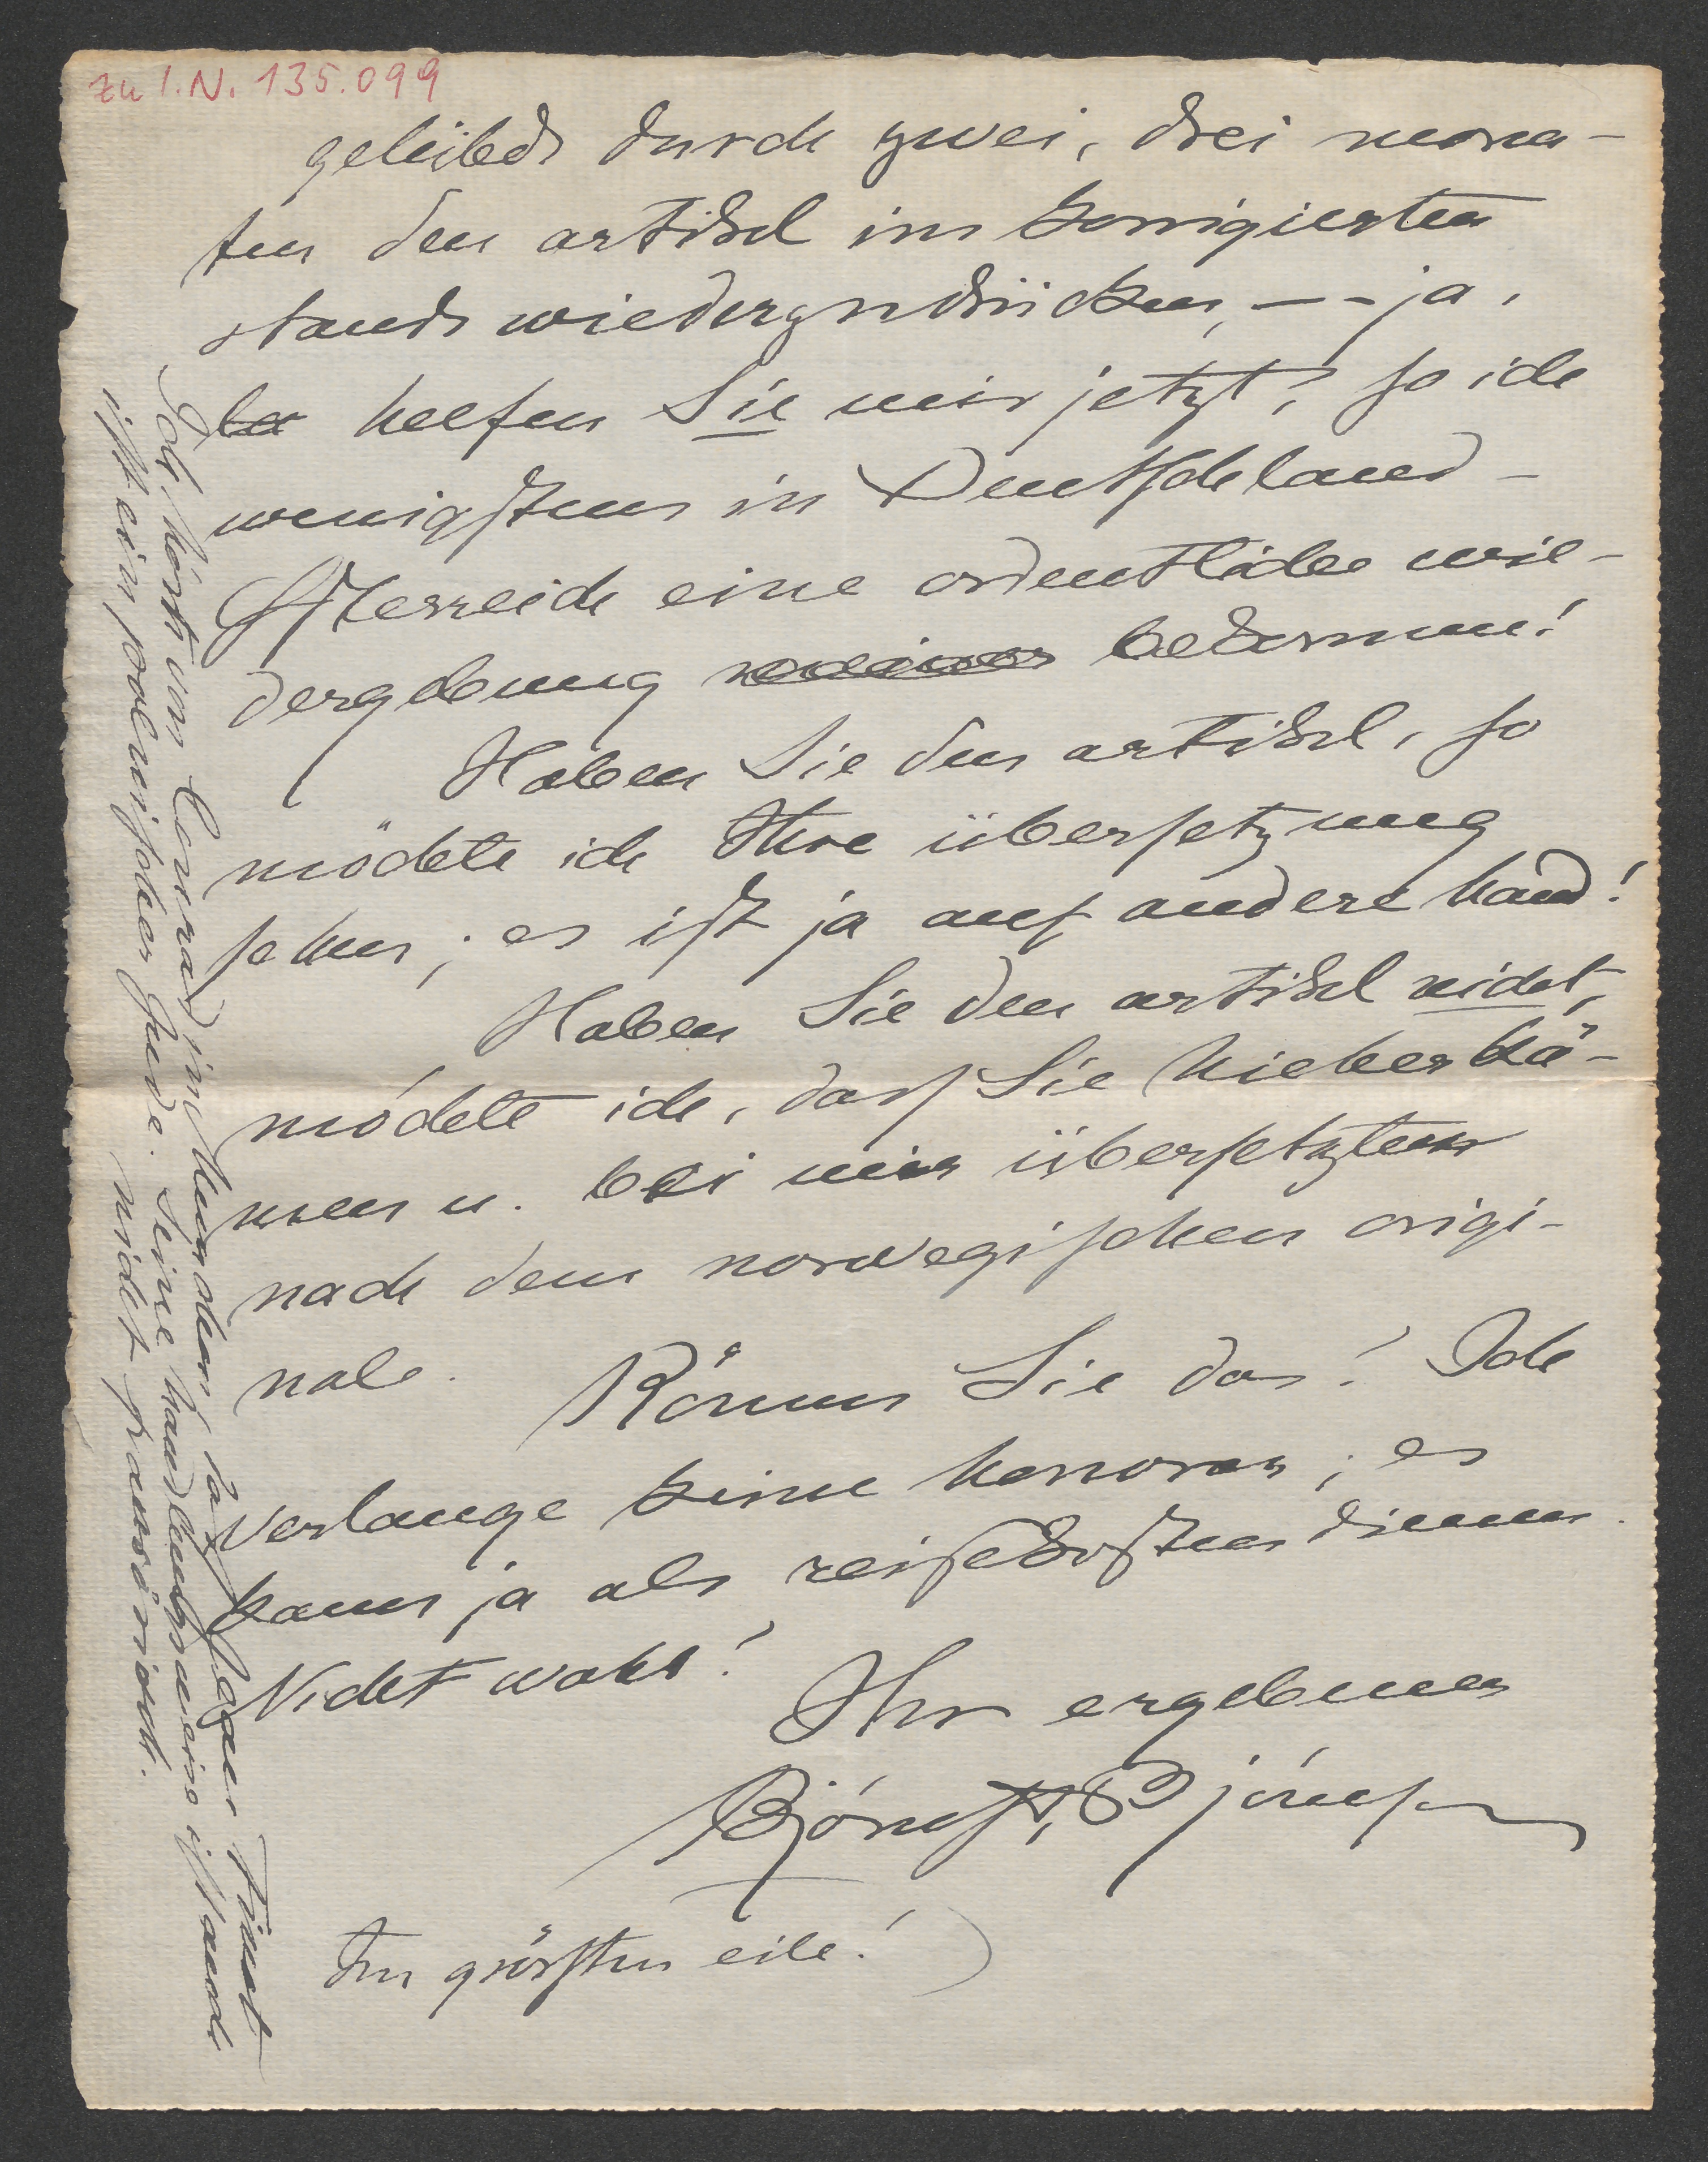 zu I.N. 135.099
durch zwei, drei mona-
ten den artikel im korrigierten
stands wiederzudrücken, -- ja,
helfen Sie mir jetzt, so ich
wenigstens in Deutschland-
Österreich eine ordentliche wie-
dergebung bekomme!
Haben Sie den artikel, so
möchte ich Ihre übersetzung
sehen; es ist ja auf andere hand!
Haben Sie den artikel nicht,
möchte ich, dass Sie hieher kä-
men u. bei mir übersetzten
nach dem norwegischen origi-
nale. Können Sie das? Ich
verlange keine honorar; es
kann ja als reisekosten dienen.
Nicht wahr?
Ihr ergebener
Bjørnst. Bjørnson
In grösster eile!
Ich hörte von Conrad in München, dass
ist ein polnischer Jude. Seine
nicht französisch.